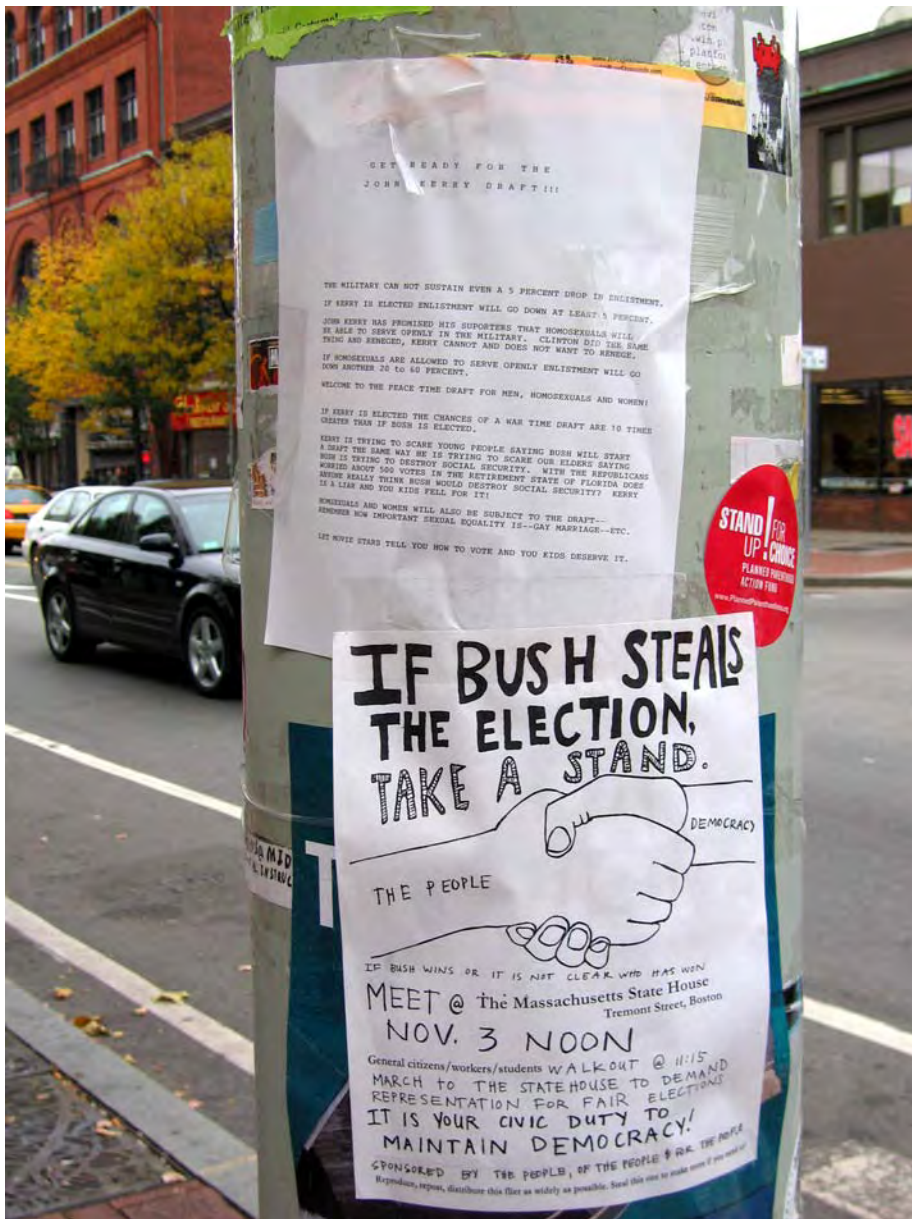 GET READY FOR THE
JOHN KERRY DRAFT!!!
THE MILITARY CAN NOT SUSTAIN EVEN A 5 PERCENT DROP IN ENLISTMENT.
IF KERRY IS ELECTED ENLISTMENT WILL GO DOWN AT LEAST 5 PERCENT.
JOHN KERRY HAS PROMISED HIS SUPORTERS THAT HOMOSEXUALS WILL
BE ABLE TO SERVE OPENLY IN THE MILITARY. CLINTON DID THE SAME
THING AND RENEGED, KERRY CANNOT AND DOES NOT WANT TO RENEGE.
IF HOMOSEXUALS ARE ALLOWED TO SERVE OPENLY ENLISTMENT WILL GO
DOWN ANOTHER 20 to 60 PERCENT.
WELCOME TO THE PEACE TIME DRAFT FOR MEN, HOMOSEXUALS AND WOMEN!
IF KERRY IS ELECTED THE CHANCES OF A WAR TIME DRAFT ARE 10 TIMES
GREATER THAN IF BUSH IS ELECTED.
KERRY IS TRYING TO SCARE YOUNG PEOPLE SAYING BUSH WILL START
A DRAFT THE SAME WAY HE IS TRYING TO SCARE OUR ELDERS SAYING
BUSH IS TRYING TO DESTROY SOCIAL SECURITY. WITH THE REPUBLICANS
WORRIED ABOUT 500 VOTES IN THE RETIREMENT STATE OF FLORIDA DOES
ANYONE REALLY THINK BUSH WOULD DESTROY SOCIAL SECURITY? KERRY
IS A LIAR AND YOU KIDS FELL FOR IT!
HOMOSEXUALS AND WOMEN WILL ALSO BE SUBJECT TO THE DRAFT--
REMEMBER HOW IMPORTANT SEXUAL EQUALITY IS--GAY MARRIAGE--ETC.
LET MOVIE STARS TELL YOU HOW TO VOTE AND YOU KIDS DESERVE IT.
STAND UP! FOR CHOICE
PLANNED PARENTHOOD
ACTION FUND
IF BUSH STEALS
THE ELECTION,
TAKE A STAND.
DEMOCRACY
THE PEOPLE
IF BUSH WINS OR IT IS NOT CLEAR WHO HAS WON
MEET @ The Massachusetts State House
Tremont Street, Boston
NOV. 3 NOON
General citizens/workers/students WALKOUT @ 11:15
MARCH to THE STATEHOUSE TO DEMAND
REPRESENTATION FOR FAIR ELECTIONS
IT IS YOUR CIVIC DUTY TO
MAINTAIN DEMOCRACY!
SPONSORED BY THE PEOPLE, OF THE PEOPLE & FOR THE PEOPLE
Reproduce, repost, distribute this flier as widely as possible. Steal this one to make more if you need to!